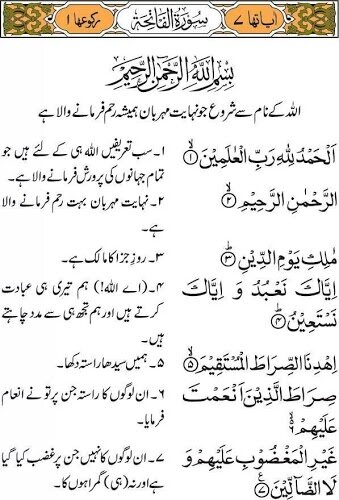 اٰیاتھا ۷ سُوْرَةُ الْفَاتِحَة رکوعھا ۱
بِسْمِ اللّٰهِ الرَّحْمٰنِ الرَّحِيْمِ
اللہ کے نام سے شروع جو نہایت مہربان ہمیشہ رحم فرمانے والا ہے
اَلْحَمْدُ لِلّٰهِ رَبِّ الْعٰلَمِيْنَ ۙ﴿۱﴾
۱۔ سب تعریفیں اللہ ہی کے لئے ہیں جو
تمام جہانوں کی پرورش فرمانے والا ہے۔
الرَّحْمٰنِ الرَّحِيْمِ ۙ﴿۲﴾
۲۔ نہایت مہربان بہت رحم فرمانے والا
ہے۔
مٰلِكِ يَوْمِ الدِّيْنِ ؕ﴿۳﴾
۳۔ روزِ جزا کا مالک ہے۔
اِيَّاكَ نَعْبُدُ وَ اِيَّاكَ
نَسْتَعِيْنُ ؕ﴿۴﴾
۴۔ (اے اللہ!) ہم تیری ہی عبادت
کرتے ہیں اور ہم تجھ ہی سے مدد چاہتے
ہیں۔
اِهْدِنَا الصِّرَاطَ الْمُسْتَقِيْمَ ۙ﴿۵﴾
۵۔ ہمیں سیدھا راستہ دکھا۔
صِرَاطَ الَّذِيْنَ اَنْعَمْتَ
عَلَيْهِمْ ۙ﴿۶﴾
۶۔ ان لوگوں کا راستہ جن پر تو نے انعام
فرمایا۔
غَيْرِ الْمَغْضُوْبِ عَلَيْهِمْ وَ
لَا الضَّآلِّيْنَ ﴿۷﴾
۷۔ ان لوگوں کا نہیں جن پر غضب کیا گیا
ہے اور نہ (ہی) گمراہوں کا۔